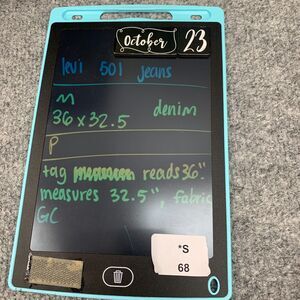 October 23
levi 501 jeans
m denim
36x32.5
P
tag reads 36".
measures 32.5", fabric
GC
*S
68